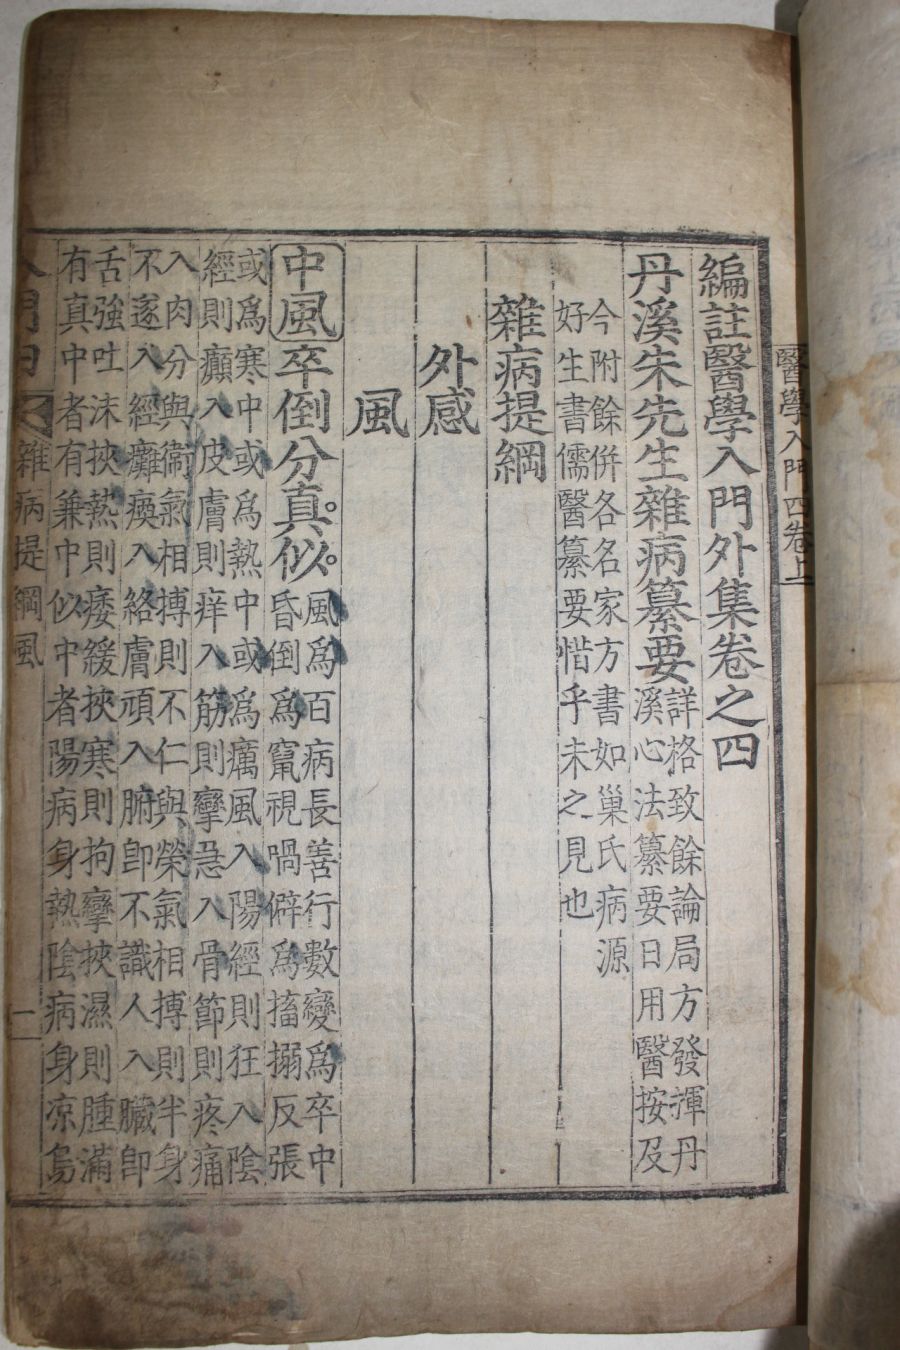 醫學入門四卷上
編註醫學入門外集卷之四
丹溪朱先生雜病纂要
詳格致餘論局方發揮丹
溪心法纂要日用醫按及
今附餘併各名家方書如巢氏病源
好生書儒醫纂要惜乎未之見也
雜病提綱
外感
風
中風卒倒分真似
風爲百病長善行數變爲卒中
昏倒爲竄視喎僻爲搐搦反張
或爲寒中或爲熱中或爲癘風入陽經則狂入陰
經則癲入皮膚則痒入筋則攣急入骨節則疼痛
入肉分與衛氣相搏則不仁與榮氣相搏則半身
不遂入經癱瘓入絡膚頑入腑卽不識人入臟卽
舌強吐沫挾熱則痿緩挾寒則拘攣挾濕則腫滿
有真中者有兼中似中者陽病身熱陰病身凉爲
雜病提綱風
一